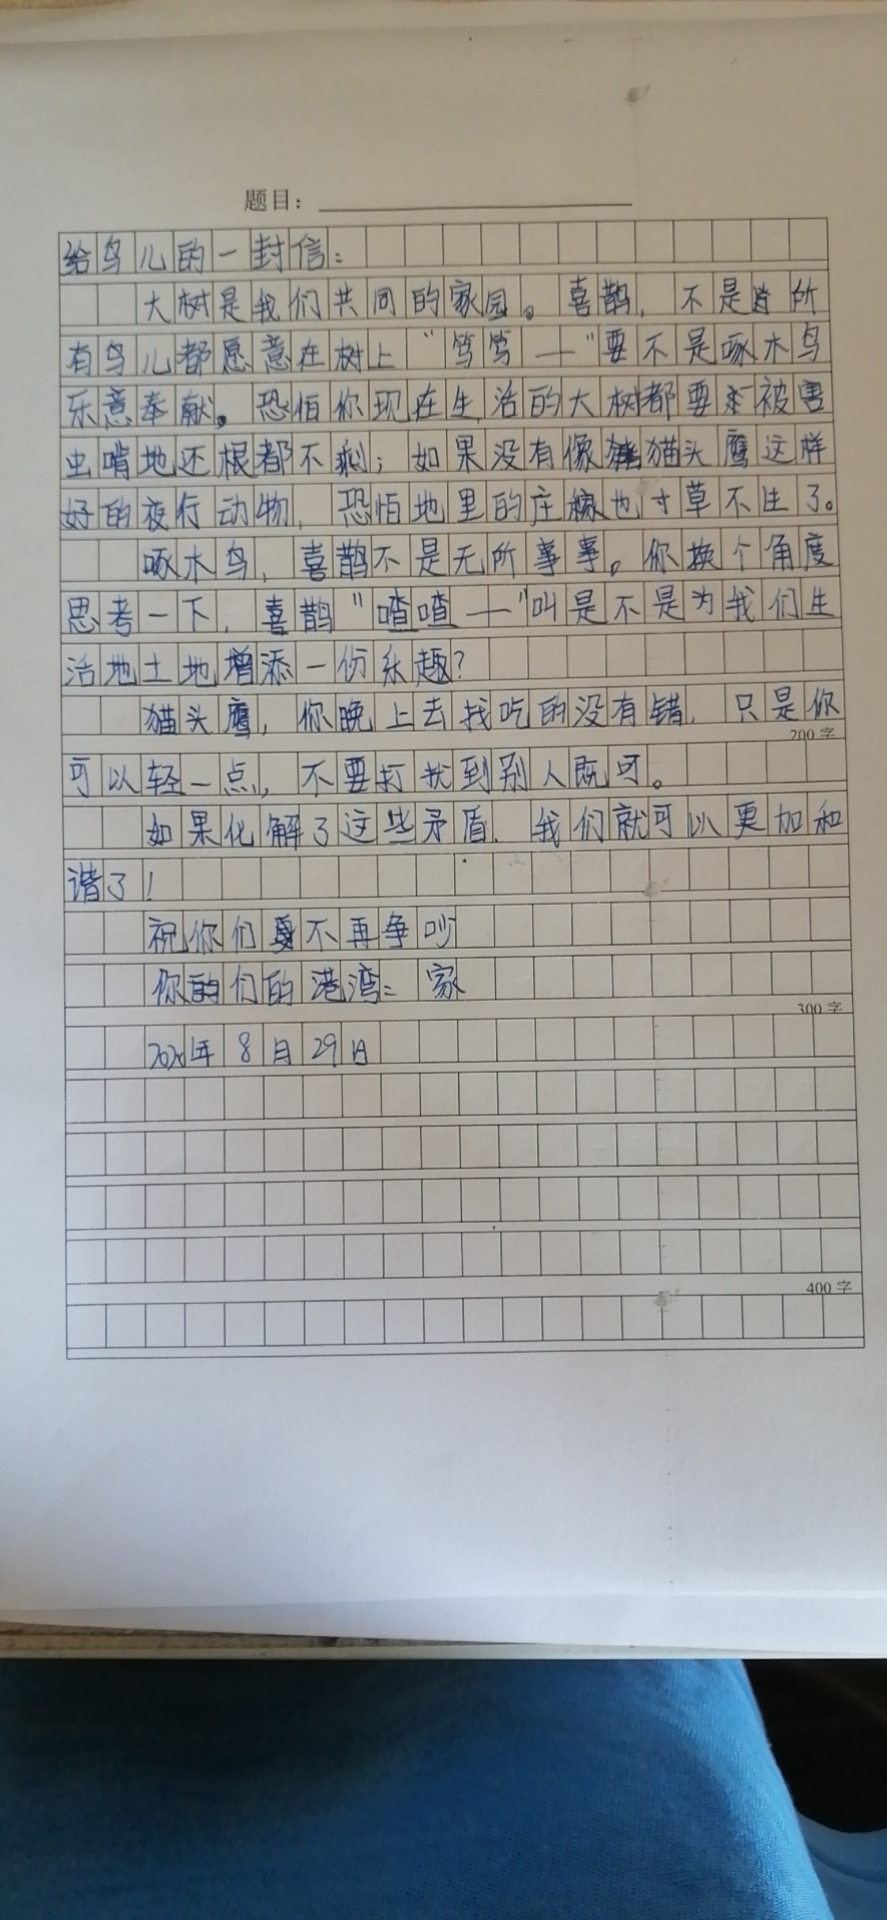 题目：
给鸟儿的一封信：
大树是我们共同的家园。喜鹊，不是所
有鸟儿都愿意在树上“笃笃—”要不是啄木鸟
乐意奉献。恐怕你现在生活的大树都要被害
虫啃地还根都不剩；如果没有像猫头鹰这样
好的夜行动物，恐怕地里的庄稼也寸草不生了。
啄木鸟，喜鹊不是无所事事。你换个角度
思考一下，喜鹊“喳喳—”叫是不是为我们生
活地土地增添一份乐趣？
猫头鹰，你晚上去找吃的没有错，只是你
200字
可以轻一点，不要打扰到别人既可。
如果化解了这些矛盾，我们就可以更加和
谐了！
祝你们不再争吵
你们的港湾：家
300字
年8月29日
400字